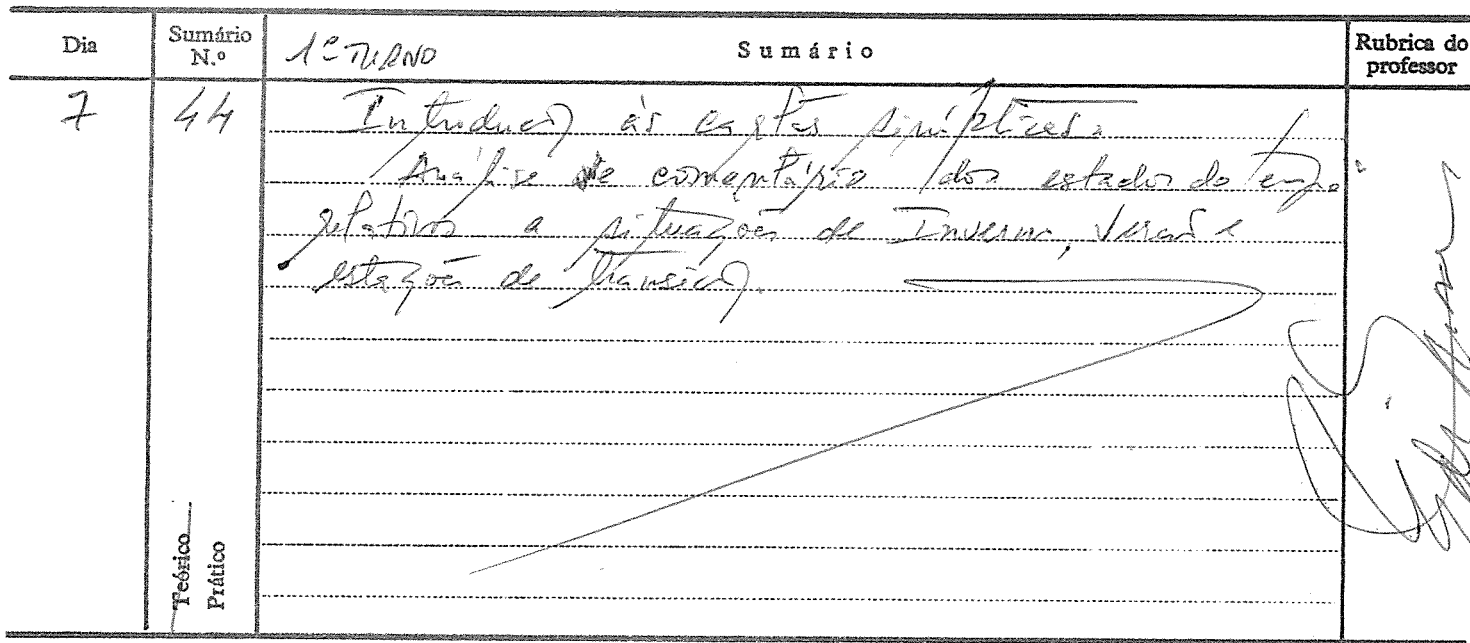 Dia
Sumário N.º
1º TURNO
Sumário
Rubrica do professor
7
44
Introdução às cartas sinópticas.
Análise e comentário dos estados do tempo
relativos a situações de Inverno, Verão e
estações de transição.
Teórico
Prático